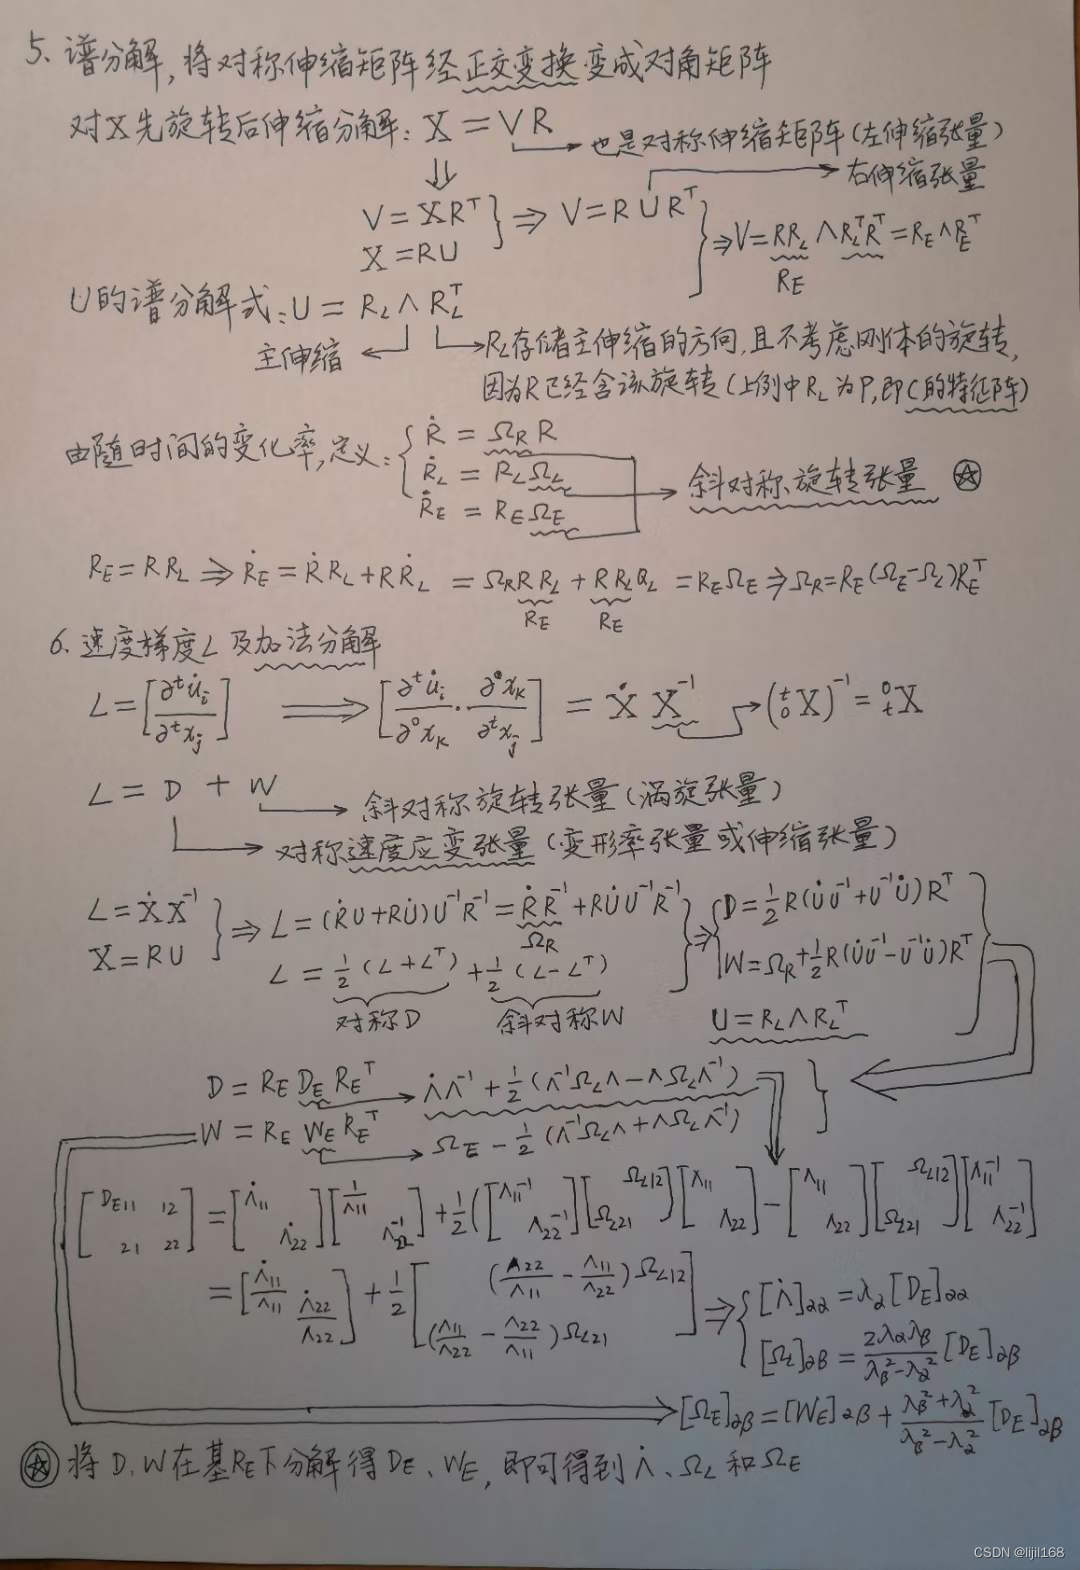 5. 谱分解,将对称伸缩矩阵经正交变换变成对角矩阵
对X先旋转后伸缩分解: X = VR
也是对称伸缩矩阵(左伸缩张量)
右伸缩张量
V = XRᵀ } ⇒ V = RURᵀ
X = RU
⇒ V = RR_L Λ R_LᵀRᵀ = R_E Λ R_Eᵀ
R_E
U的谱分解式: U = R_L Λ R_Lᵀ
主伸缩
R_L存储主伸缩的方向,且不考虑刚体的旋转,
因为R已经含该旋转(上例中R_L为P,即C的特征阵)
由随时间的变化率,定义: { Ṙ = Ω_R R
Ṙ_L = R_L Ω_L
Ṙ_E = R_E Ω_E
斜对称旋转张量 ☆
R_E = RR_L ⇒ Ṙ_E = ṘR_L + RṘ_L = Ω_R RR_L + RR_LΩ_L = R_EΩ_E ⇒ Ω_R = R_E(Ω_E-Ω_L)R_Eᵀ
R_E R_E
6. 速度梯度L及加法分解
L = [∂ᵗu̇ᵢ/∂ᵗxⱼ] ⟹ [∂ᵗu̇ᵢ/∂⁰x_K · ∂⁰x_K/∂ᵗxⱼ] = Ẋ X⁻¹ → (ᵗ₀X)⁻¹ = ⁰ₜX
L = D + W
斜对称旋转张量(涡旋张量)
对称速度应变张量(变形率张量或伸缩张量)
L = ẊX⁻¹ } ⇒ L = (ṘU+RU̇)U⁻¹R⁻¹ = ṘR⁻¹ + RU̇U⁻¹R⁻¹
X = RU
Ω_R
L = 1/2(L+Lᵀ) + 1/2(L-Lᵀ)
对称D 斜对称W
⇒ { D = 1/2 R(U̇U⁻¹+U⁻¹U̇)Rᵀ
W = Ω_R + 1/2 R(U̇U⁻¹-U⁻¹U̇)Rᵀ
U = R_L Λ R_Lᵀ
D = R_E D_E R_Eᵀ → Λ̇Λ⁻¹ + 1/2(Λ⁻¹Ω_LΛ - ΛΩ_LΛ⁻¹)
W = R_E W_E R_Eᵀ → Ω_E - 1/2(Λ⁻¹Ω_LΛ + ΛΩ_LΛ⁻¹)
[D_E11 12 21 22] = [Λ̇11 Λ̇22][1/Λ11 Λ22⁻¹] + 1/2([Λ11⁻¹ Λ22⁻¹][Ω_L12 Ω_L21][Λ11 Λ22] - [Λ11 Λ22][Ω_L12 Ω_L21][Λ11⁻¹ Λ22⁻¹]
= [Λ̇11/Λ11 Λ̇22/Λ22] + 1/2[(Λ22/Λ11 - Λ11/Λ22)Ω_L12 (Λ11/Λ22 - Λ22/Λ11)Ω_L21]
⇒ { [Λ̇]αα = λα[D_E]αα
[Ω_L]αβ = 2λαλβ/(λβ²-λα²) [D_E]αβ
[Ω_E]αβ = [W_E]αβ + (λβ²+λα²)/(λβ²-λα²) [D_E]αβ
☆ 将D、W在基R_E下分解得D_E、W_E,即可得到Λ̇、Ω_L和Ω_E
CSDN @lijil168